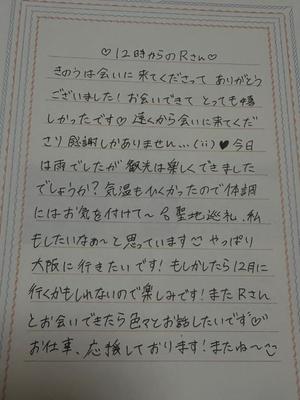 ♡12時からのRさん♡
きのうは会いに来てくださって ありがとう
ございました！お会いできて とっても嬉
しかったです♡遠くから会いに来てくだ
さり感謝しかありません…(ii)♥今日
は雨でしたが観光は楽しくできました
でしょうか？気温もひくかったので体調
にはお気を付けて〜 名聖地巡礼、私
もしたいなぁ〜と思っています やっぱり
大阪に行きたいです！もしかしたら12月に
行くかもしれないので楽しみです！またRさん
とお会いできたら色々とお話したいです♡
お仕事、応援しております！またね〜